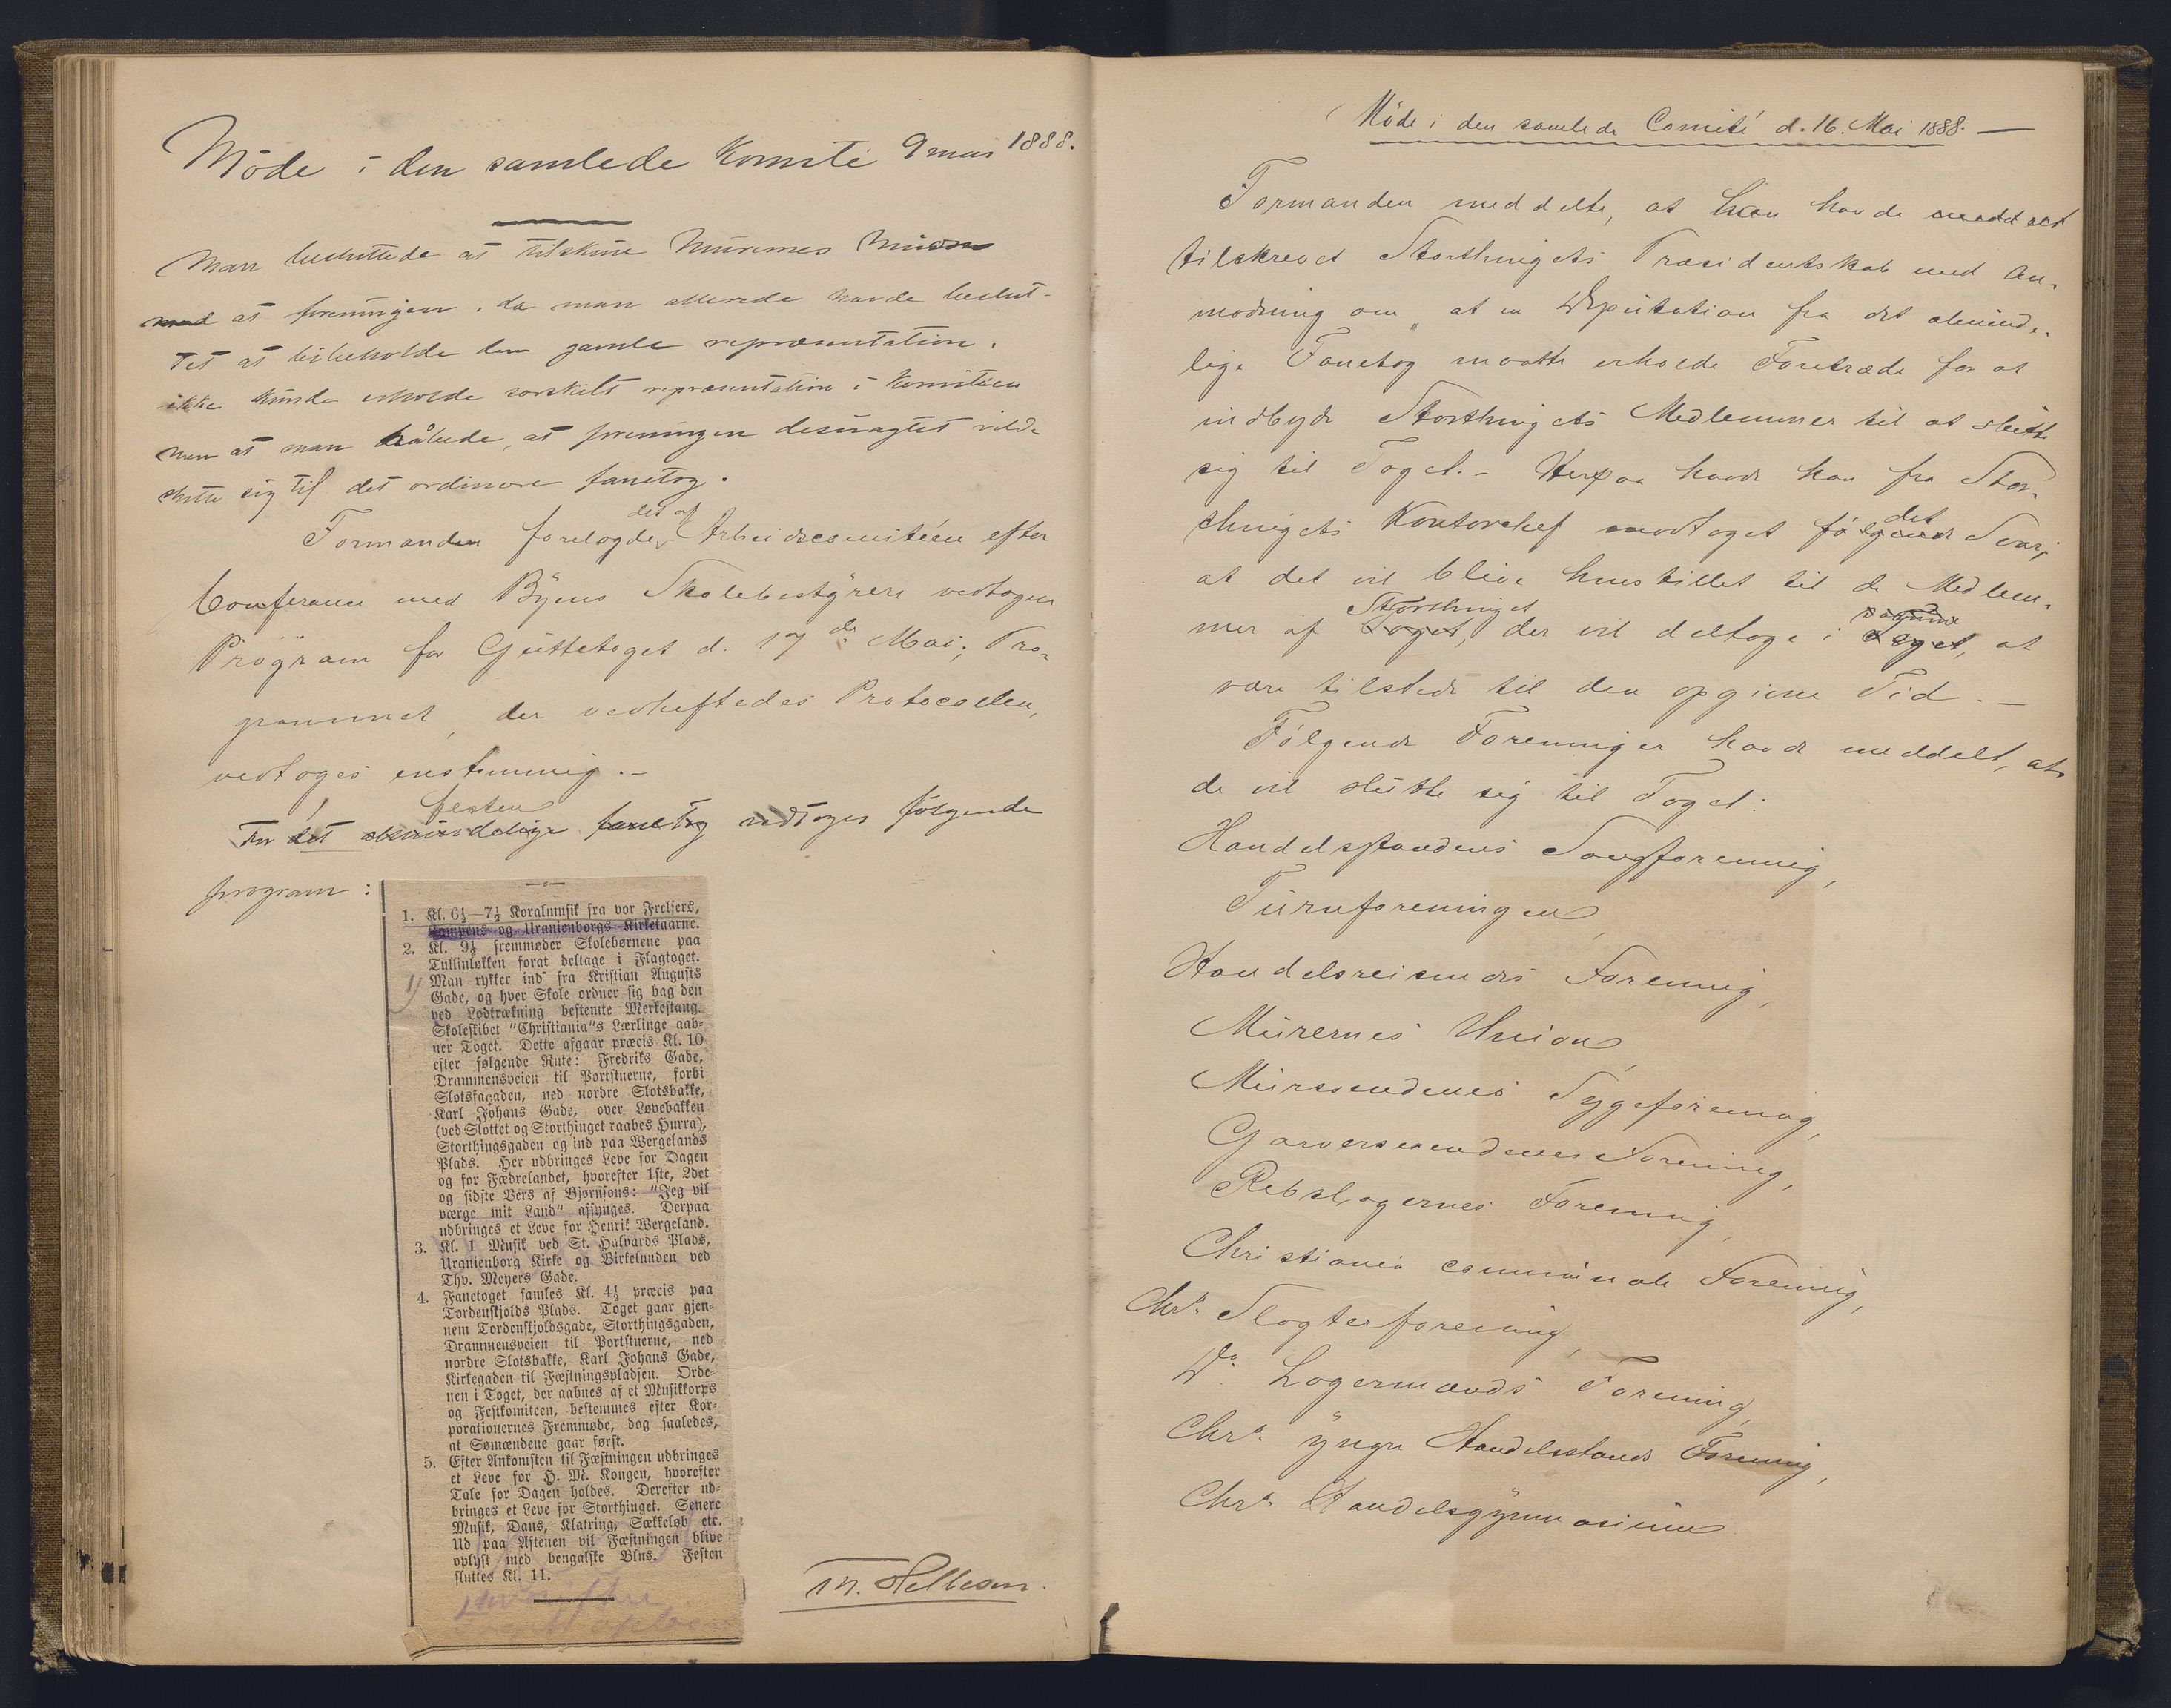 Møde i den samlede Komité 9 mai 1888.
Man besluttede at tilskrive Murernes Union
med at foreningen, da man allerede havde beslut-
tet at bibeholde den gamle repræsentation,
ikke kunde erholde særskilt repræsentation i Komitéen
men at man håbede, at foreningen desuagtet vilde
slutte sig til det ordinære fanetog.
Formanden forelagde det af Arbeidscomitéen efter
Conferance med Byens Skolebestyrere vedtagne
Program for Guttetoget d. 17de Mai; Pro-
grammet, der vedheftedes Protocollen,
vedtoges enstemmig. -
For det almindelige fanetog festen vedtoges følgende
program:
1. Kl. 6½—7½ Koralmusik fra vor Frelsers,
Kampens og Uranienborgs Kirketaarne.
2. Kl. 9½ fremmøder Skolebørnene paa
Tullinløkken forat deltage i Flagtoget.
1) Man rykker ind fra Kristian Augusts
Gade, og hver Skole ordner sig bag den
ved Lodtrækning bestemte Merkestang.
Skoleskibet "Christiania"s Lærlinge aab-
ner Toget. Dette afgaar præcis Kl. 10
efter følgende Rute: Fredriks Gade,
Drammensveien til Portstuerne, forbi
Slotsfaçaden, ned nordre Slotsbakke,
Karl Johans Gade, over Løvebakken
(ved Slottet og Storthinget raabes Hurra),
Storthingsgaden og ind paa Wergelands
Plads. Her udbringes Leve for Dagen
og for Fædrelandet, hvorefter 1ste, 2det
og sidste Vers af Bjørnsons: "Jeg vil
værge mit Land" afsynges. Derpaa
udbringes et Leve for Henrik Wergeland.
3. Kl. 1 Musik ved St. Halvards Plads,
Uranienborg Kirke og Birkelunden ved
Thv. Meyers Gade.
4. Fanetoget samles Kl. 4½ præcis paa
Tordenskjolds Plads. Toget gaar gjen-
nem Tordenskjoldsgade, Storthingsgaden,
Drammensveien til Portstuerne, ned
nordre Slotsbakke, Karl Johans Gade,
Kirkegaden til Fæstningspladsen. Orde-
nen i Toget, der aabnes af et Musikkorps
og Festkomiteen, bestemmes efter Kor-
porationernes Fremmøde, dog saaledes,
at Sømændene gaar først.
5. Efter Ankomsten til Fæstningen udbringes
et Leve for H. M. Kongen, hvorefter
Tale for Dagen holdes. Derefter ud-
bringes et Leve for Storthinget. Senere
Musik, Dans, Klatring, Sækkeløb etc.
Ud paa Aftenen vil Fæstningen blive
oplyst med bengalske Blus. Festen
sluttes Kl. 11.
Møde i den samlede Comité d. 16. Mai 1888. —
Formanden meddelte, at han havde
tilskrevet Storthingets Præsidentskab med An-
modning om, at en Deputation fra det alminde-
lige Fanetog maatte erholde Foretræde for at
indbyde Storthingets Medlemmer til at slutte
sig til Toget. - Herpaa havde han fra Stor-
thingets Kontorchef modtaget følgende det Svar,
at det vil blive henstillet til de Medlem-
mer af Toget, Storthinget der vil deltage i Toget, at
være tilstede til den opgivne Tid. —
Følgende Foreninger havde meddelt, at
de vil slutte sig til Toget:
Handelsstandens Sangforening,
Turnforeningen,
Handelsreisendes Forening,
Murernes Union,
Murersvendenes Sygeforening,
Garversvendenes Forening,
Rebslagernes Forening,
Christiania communale Forening,
Chra Slagterforening,
Do Lagermænds Forening,
Chra yngre Handelsstands Forening,
Chra Handelsgymnasium